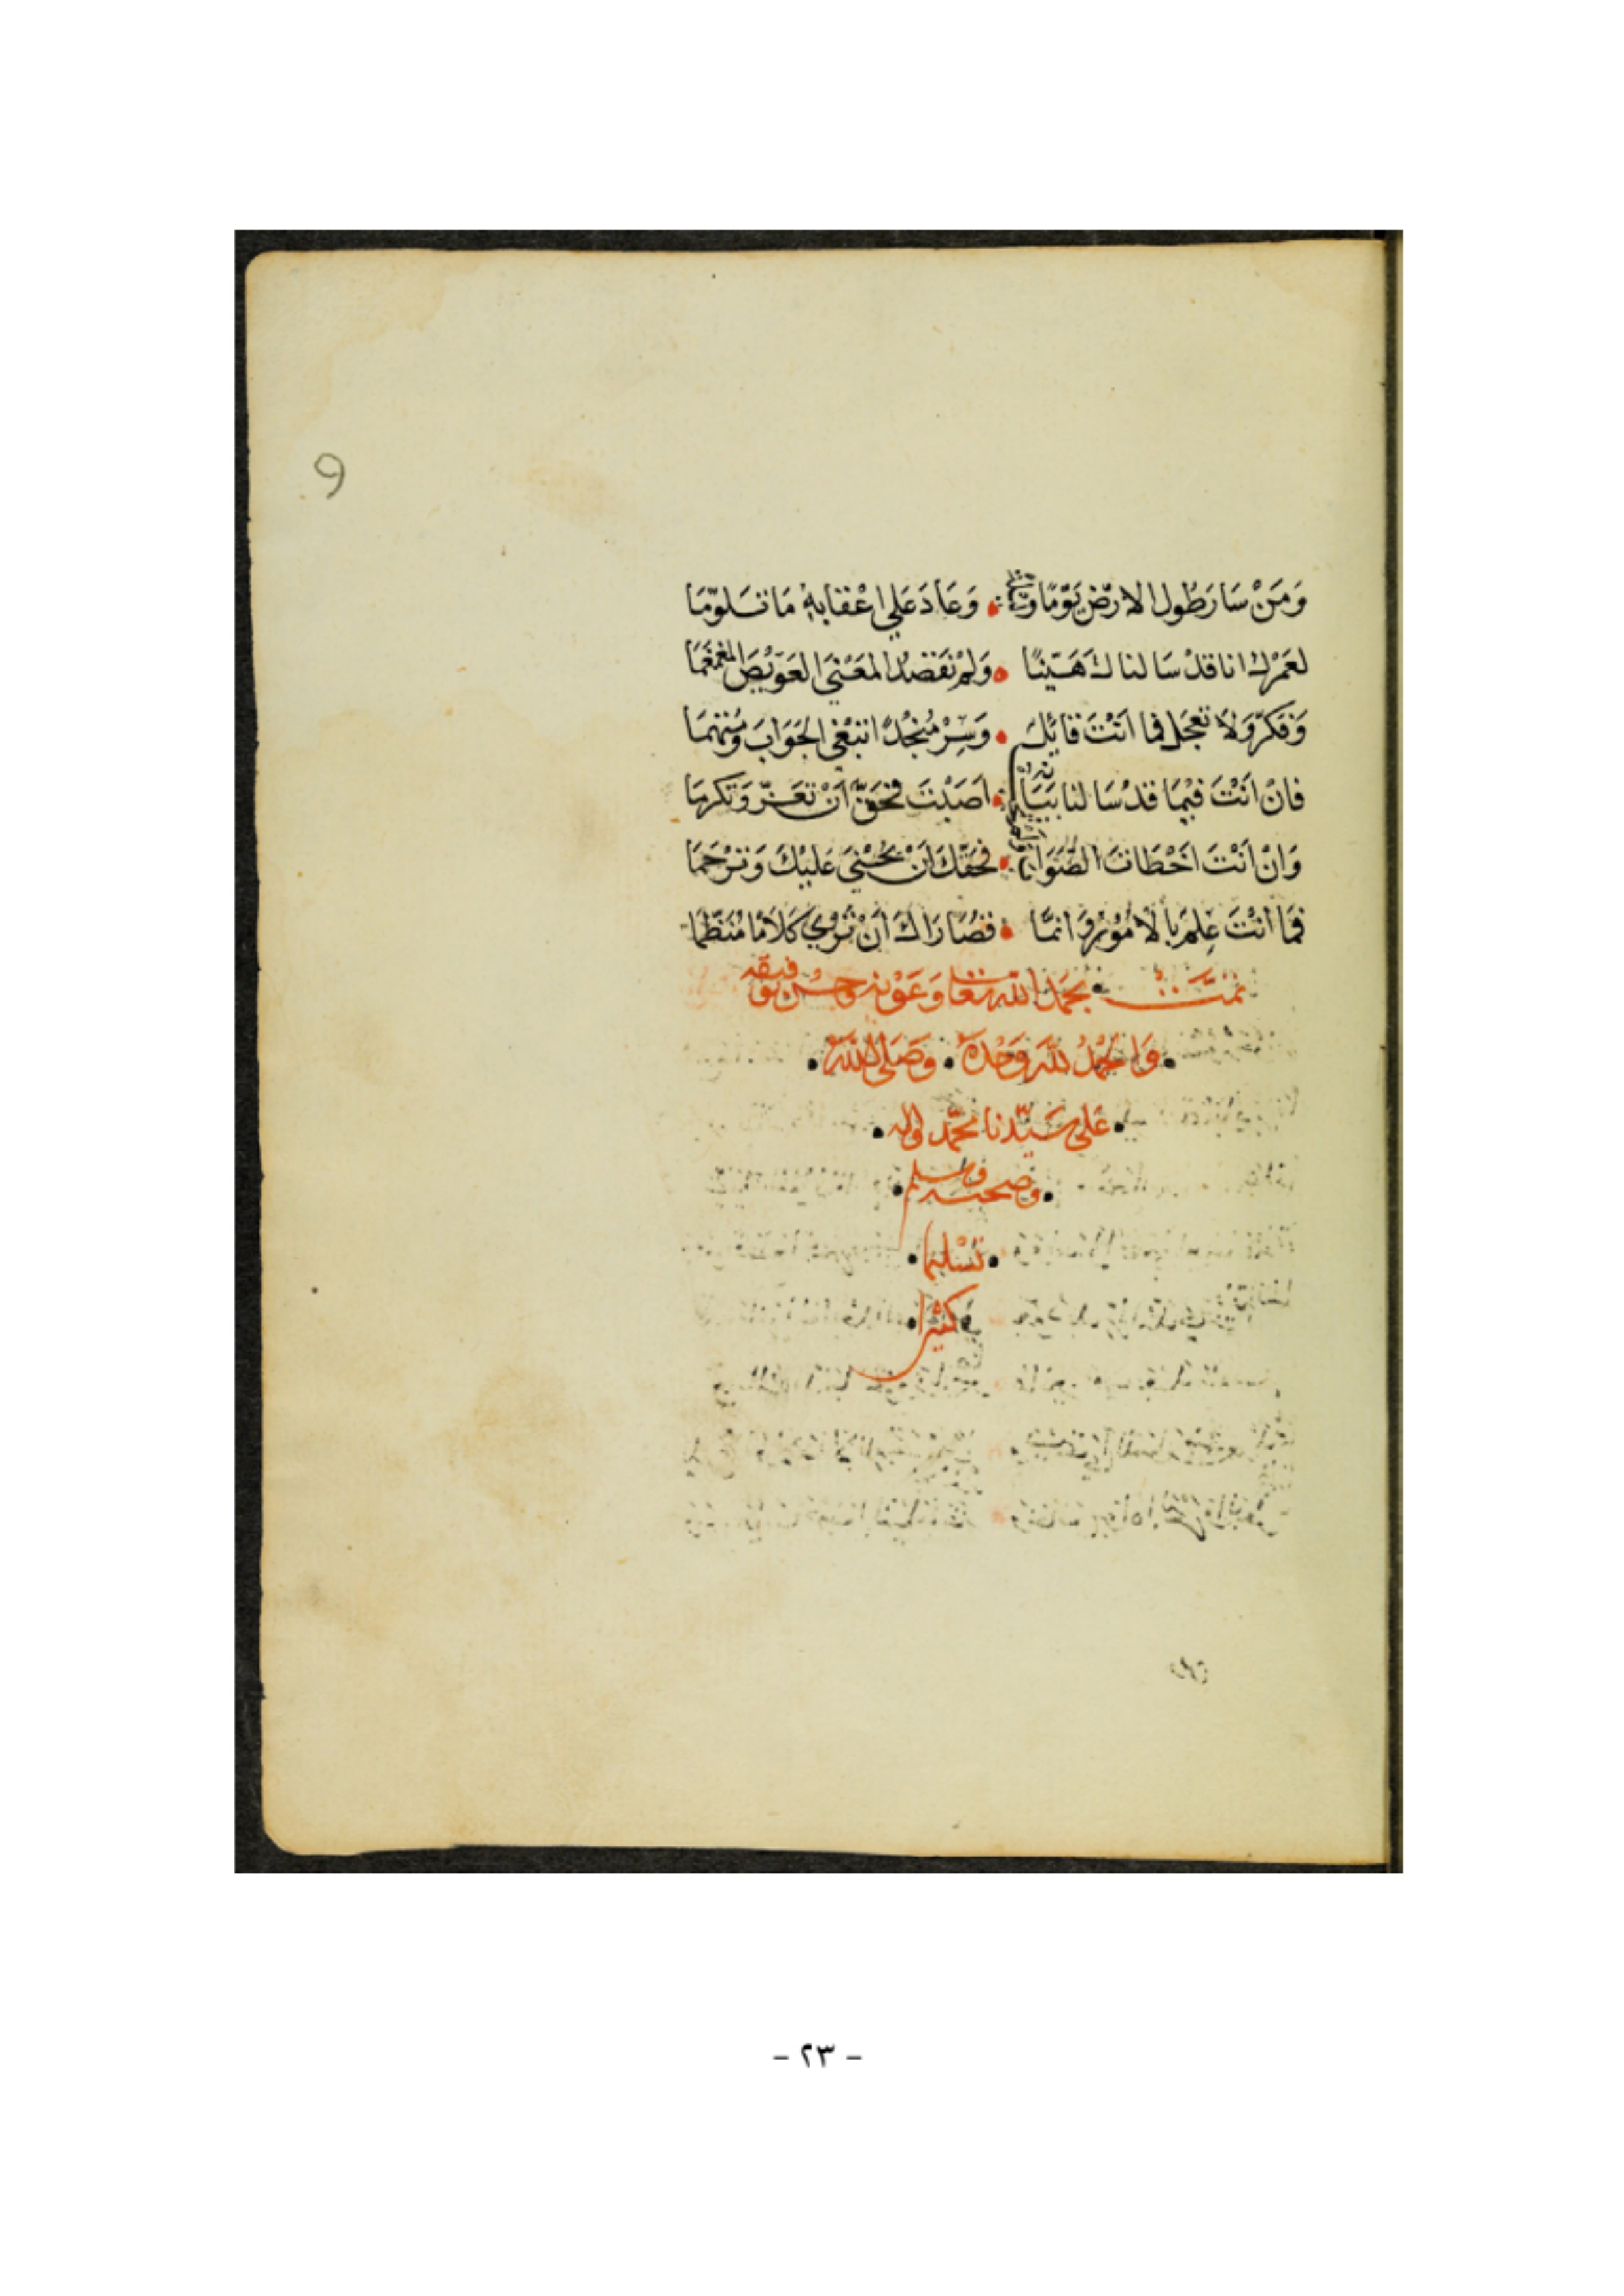 9
وَمَنْ سَارَ طُول الارْضِ يَوْمًا وَ وَعَادَ عَلي اعْقابهِ مَا تَسَلوّمَا
لعَمْرك انا قدْ سَالناكَ هَيّنًا وَلمْ نَقصْد المَعْنَي العَوَيْصَ المغمغَمَا
وَفكرّ وَلَا تعجَل فما انْتَ قائِلٌ وَسِرْ مُنْجُدًا تبْغي الجَوَابَ وَمُتْهمَا
فانْ انْتَ فيْمَا قدْ سَالنا بَيَانه اصَبْتَ فحَقّ انْ تعَزّ وَتكرمَا
وَانْ انْتَ اخْطات الصَّوَاب فحَقّكَ انْ يحْثي عَليْكَ وَترْحَمَا
فمَا انْتَ عِلم بالامُوْر وَ انمَّا قصُارَاكَ انْ تَرْوي كَلَامًا مُنَظّمَا
تمتَّ بحَمْد الله تعَا وَعَوْنه وَحسْن توفيقه
وَالحمْدُ للّه وَحْدهُ وَصَلي اللّهُ
عَلى سَيّدنا محمّد واله
وصحبه وسلم
تسْليما
كثيرا
- ٢٣ -